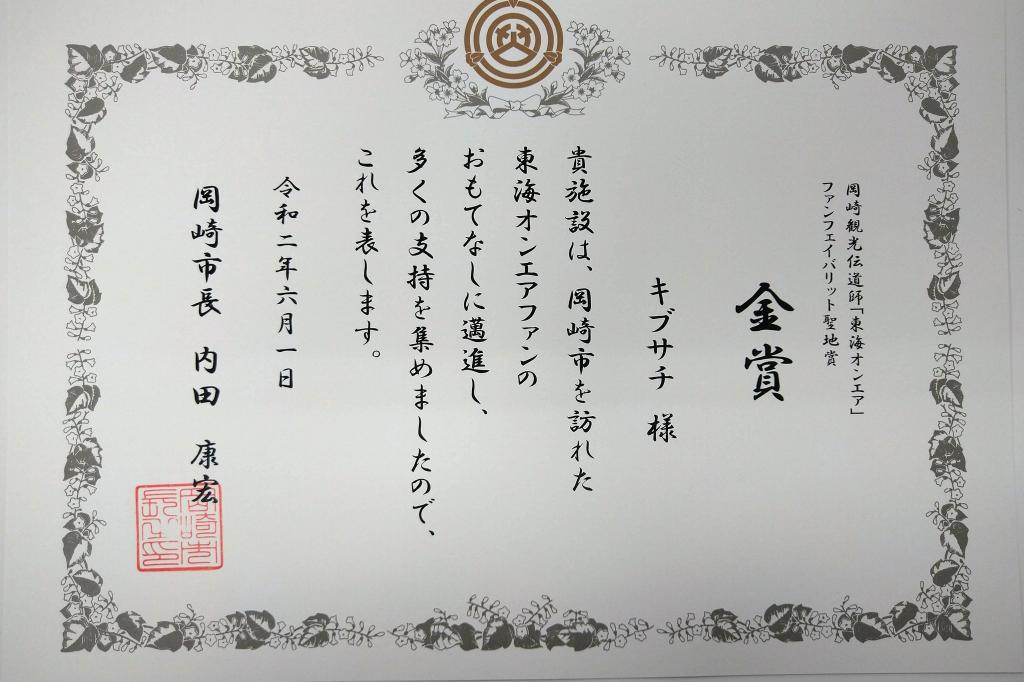 岡崎観光伝道師「東海オンエア」
ファンフェイバリット聖地賞
金賞
キブサチ 様
貴施設は、岡崎市を訪れた
東海オンエアファンの
おもてなしに邁進し、
多くの支持を集めましたので、
これを表します。
令和二年六月一日
岡崎市長 内田 康宏
岡崎市長之印